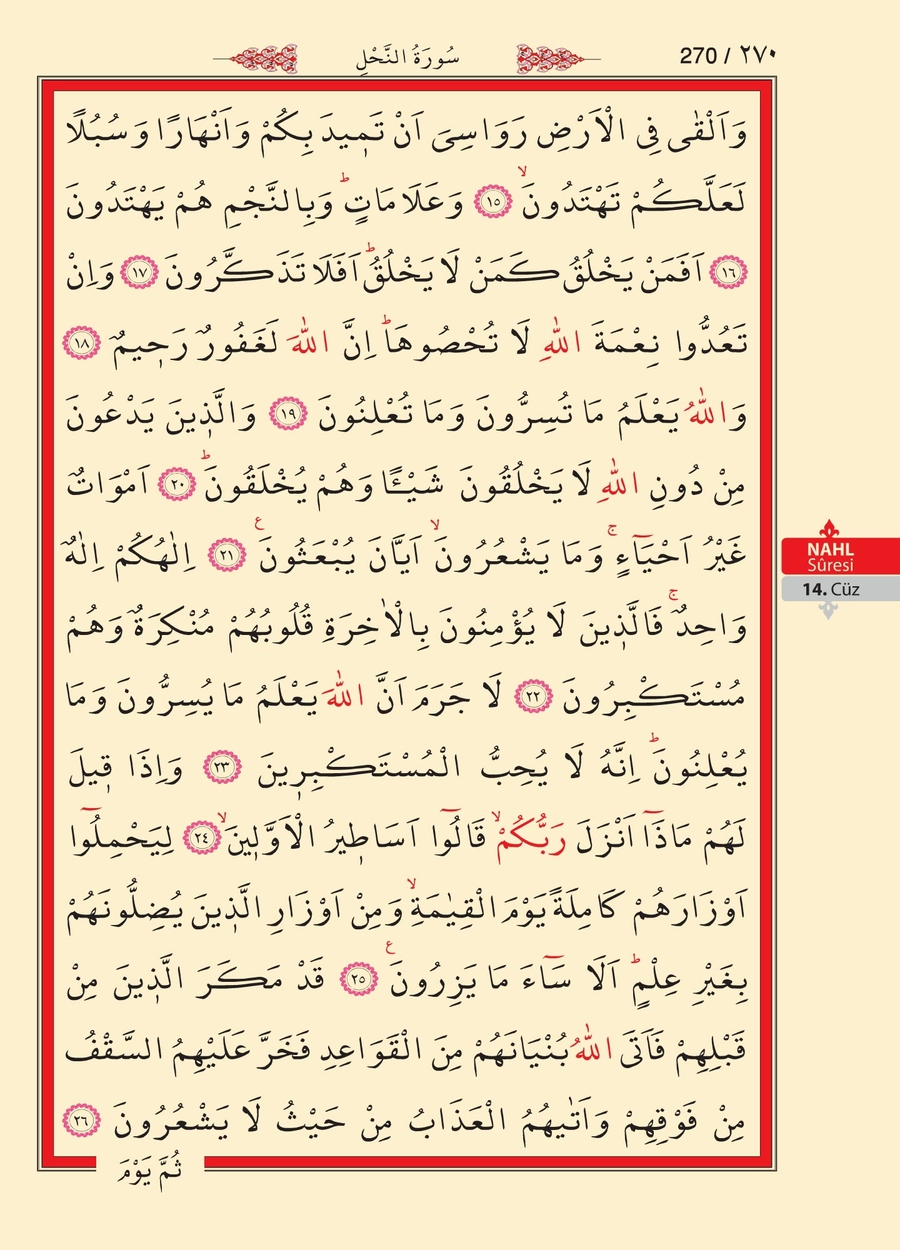 سُورَةُ النَّحْلِ
270 / ٢٧٠
وَاَلْقٰى فِي الْاَرْضِ رَوَاسِيَ اَنْ تَم۪يدَ بِكُمْ وَاَنْهَارًا وَسُبُلًا
لَعَلَّكُمْ تَهْتَدُونَۙ ١٥ وَعَلَامَاتٍۜ وَبِالنَّجْمِ هُمْ يَهْتَدُونَ
١٦ اَفَمَنْ يَخْلُقُ كَمَنْ لَا يَخْلُقُۜ اَفَلَا تَذَكَّرُونَ ١٧ وَاِنْ
تَعُدُّوا نِعْمَةَ اللّٰهِ لَا تُحْصُوهَاۜ اِنَّ اللّٰهَ لَغَفُورٌ رَح۪يمٌ ١٨
وَاللّٰهُ يَعْلَمُ مَا تُسِرُّونَ وَمَا تُعْلِنُونَ ١٩ وَالَّذ۪ينَ يَدْعُونَ
مِنْ دُونِ اللّٰهِ لَا يَخْلُقُونَ شَيْـًٔا وَهُمْ يُخْلَقُونَۜ ٢٠ اَمْوَاتٌ
غَيْرُ اَحْيَٓاءٍۚ وَمَا يَشْعُرُونَۙ اَيَّانَ يُبْعَثُونَ۟ ٢١ اِلٰهُكُمْ اِلٰهٌ
وَاحِدٌۚ فَالَّذ۪ينَ لَا يُؤْمِنُونَ بِالْاٰخِرَةِ قُلُوبُهُمْ مُنْكِرَةٌ وَهُمْ
مُسْتَكْبِرُونَ ٢٢ لَا جَرَمَ اَنَّ اللّٰهَ يَعْلَمُ مَا يُسِرُّونَ وَمَا
يُعْلِنُونَۜ اِنَّهُ لَا يُحِبُّ الْمُسْتَكْبِر۪ينَ ٢٣ وَاِذَا ق۪يلَ
لَهُمْ مَاذَٓا اَنْزَلَ رَبُّكُمْۙ قَالُٓوا اَسَاط۪يرُ الْاَوَّل۪ينَۙ ٢٤ لِيَحْمِلُٓوا
اَوْزَارَهُمْ كَامِلَةً يَوْمَ الْقِيٰمَةِۙ وَمِنْ اَوْزَارِ الَّذ۪ينَ يُضِلُّونَهُمْ
بِغَيْرِ عِلْمٍۜ اَلَا سَٓاءَ مَا يَزِرُونَ۟ ٢٥ قَدْ مَكَرَ الَّذ۪ينَ مِنْ
قَبْلِهِمْ فَاَتَى اللّٰهُ بُنْيَانَهُمْ مِنَ الْقَوَاعِدِ فَخَرَّ عَلَيْهِمُ السَّقْفُ
مِنْ فَوْقِهِمْ وَاَتٰيهُمُ الْعَذَابُ مِنْ حَيْثُ لَا يَشْعُرُونَ ٢٦
ثُمَّ يَوْمَ
NAHL
Sûresi
14. Cüz